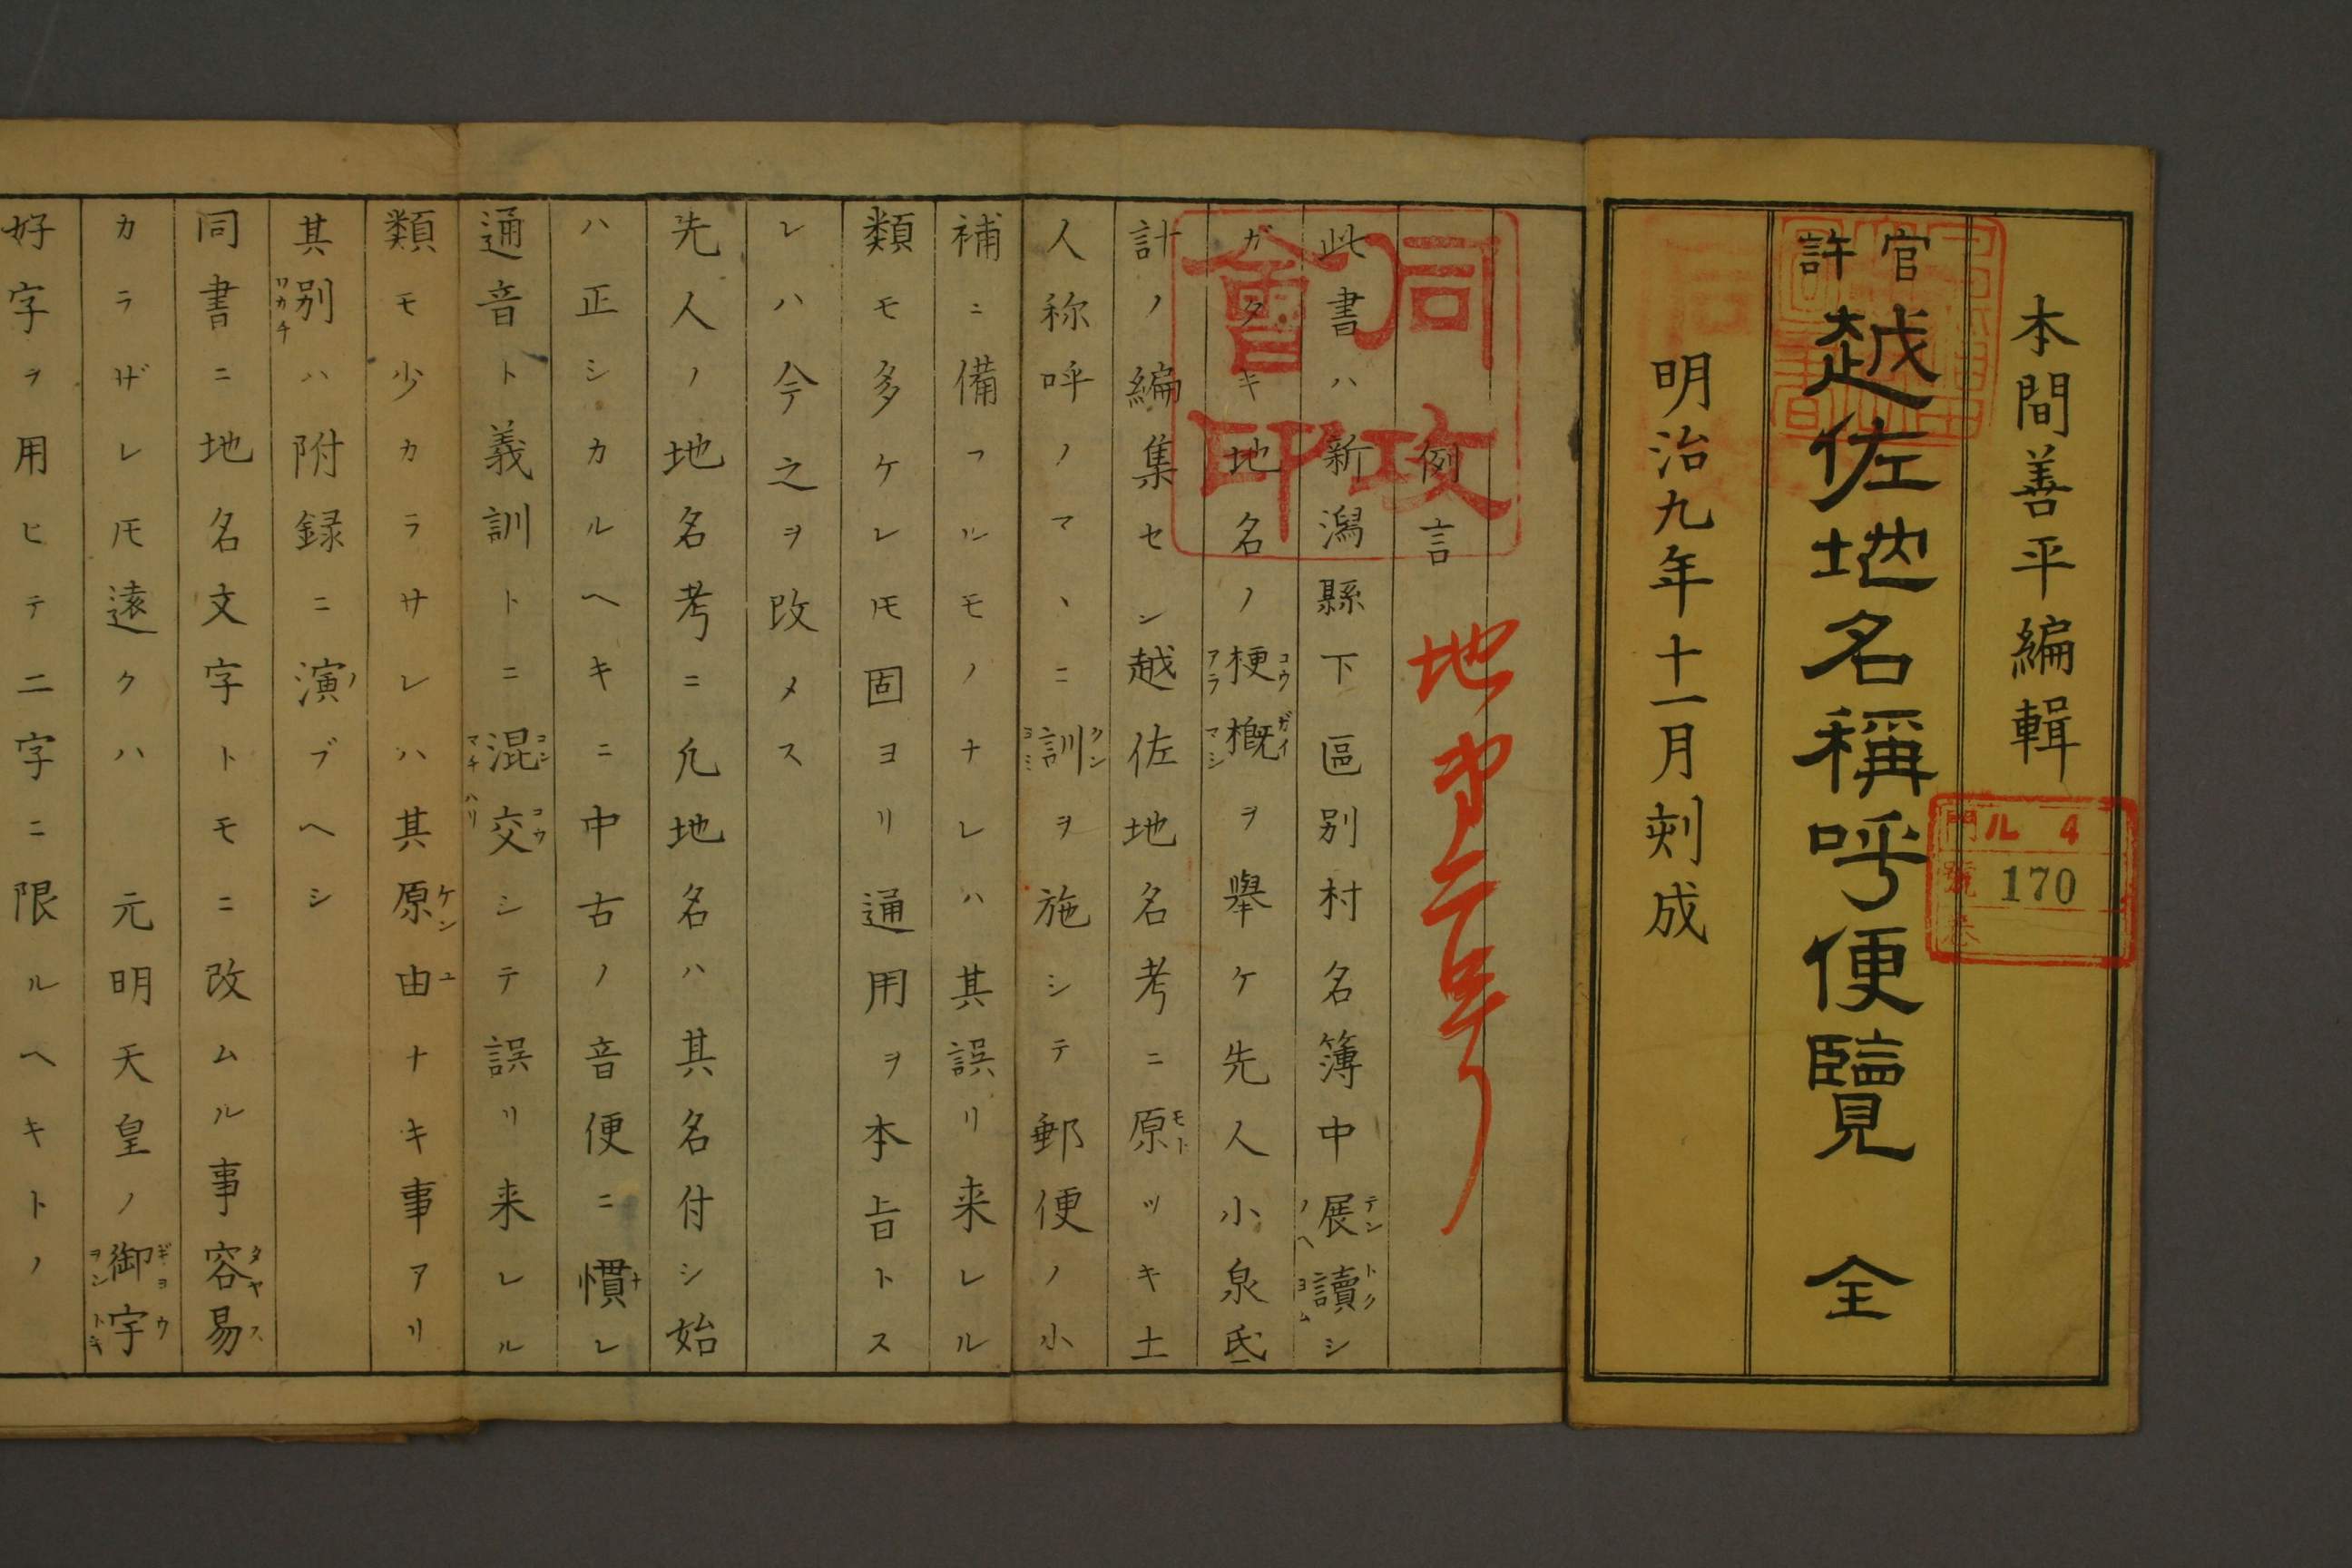 本間善平編輯
官許
越佐地名稱呼便覽　全
明治九年十一月刻成
門 ル 4
號 170
卷
同攻會印
例言
此書ハ新潟縣下區別村名簿中展讀シ
ガタキ地名ノ梗概ヲ舉ケ先人小泉氏
計ノ編集セシ越佐地名考ニ原ツキ土
人称呼ノマヽニ訓ヲ施シテ郵便ノ小
補ニ備フルモノナレハ其誤リ来レル
類モ多ケレ𪜈固ヨリ通用ヲ本旨トス
レハ今之ヲ改メス
先人ノ地名考ニ凢地名ハ其名付シ始
ハ正シカルヘキニ中古ノ音便ニ慣レ
通音ト義訓トニ混交シテ誤リ来レル
類モ少カラサレハ其原由ナキ事アリ
其別ハ附録ニ演ブヘシ
同書ニ地名文字トモニ改ムル事容易
カラザレ𪜈遠クハ　元明天皇ノ御宇
好字ヲ用ヒテ二字ニ限ルヘキトノ